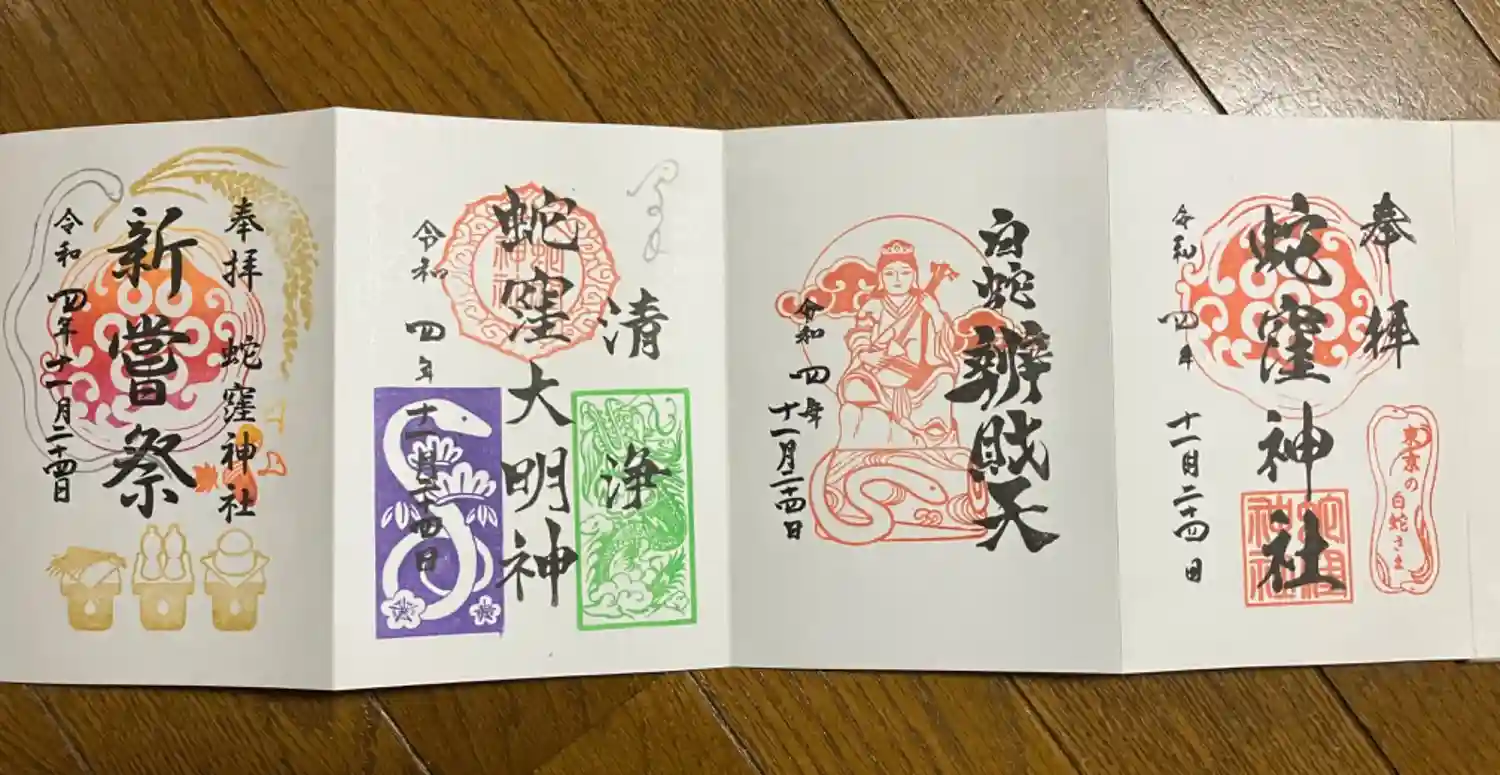 奉拝
東京の
白蛇さま
蛇窪神社
令和四年 十一月二十四日
白蛇辨財天
令和四年
十一月二十四日
清浄
蛇窪大明神
令和四年十一月二十四日
奉拝 蛇窪神社
新嘗祭
令和四年十一月二十四日